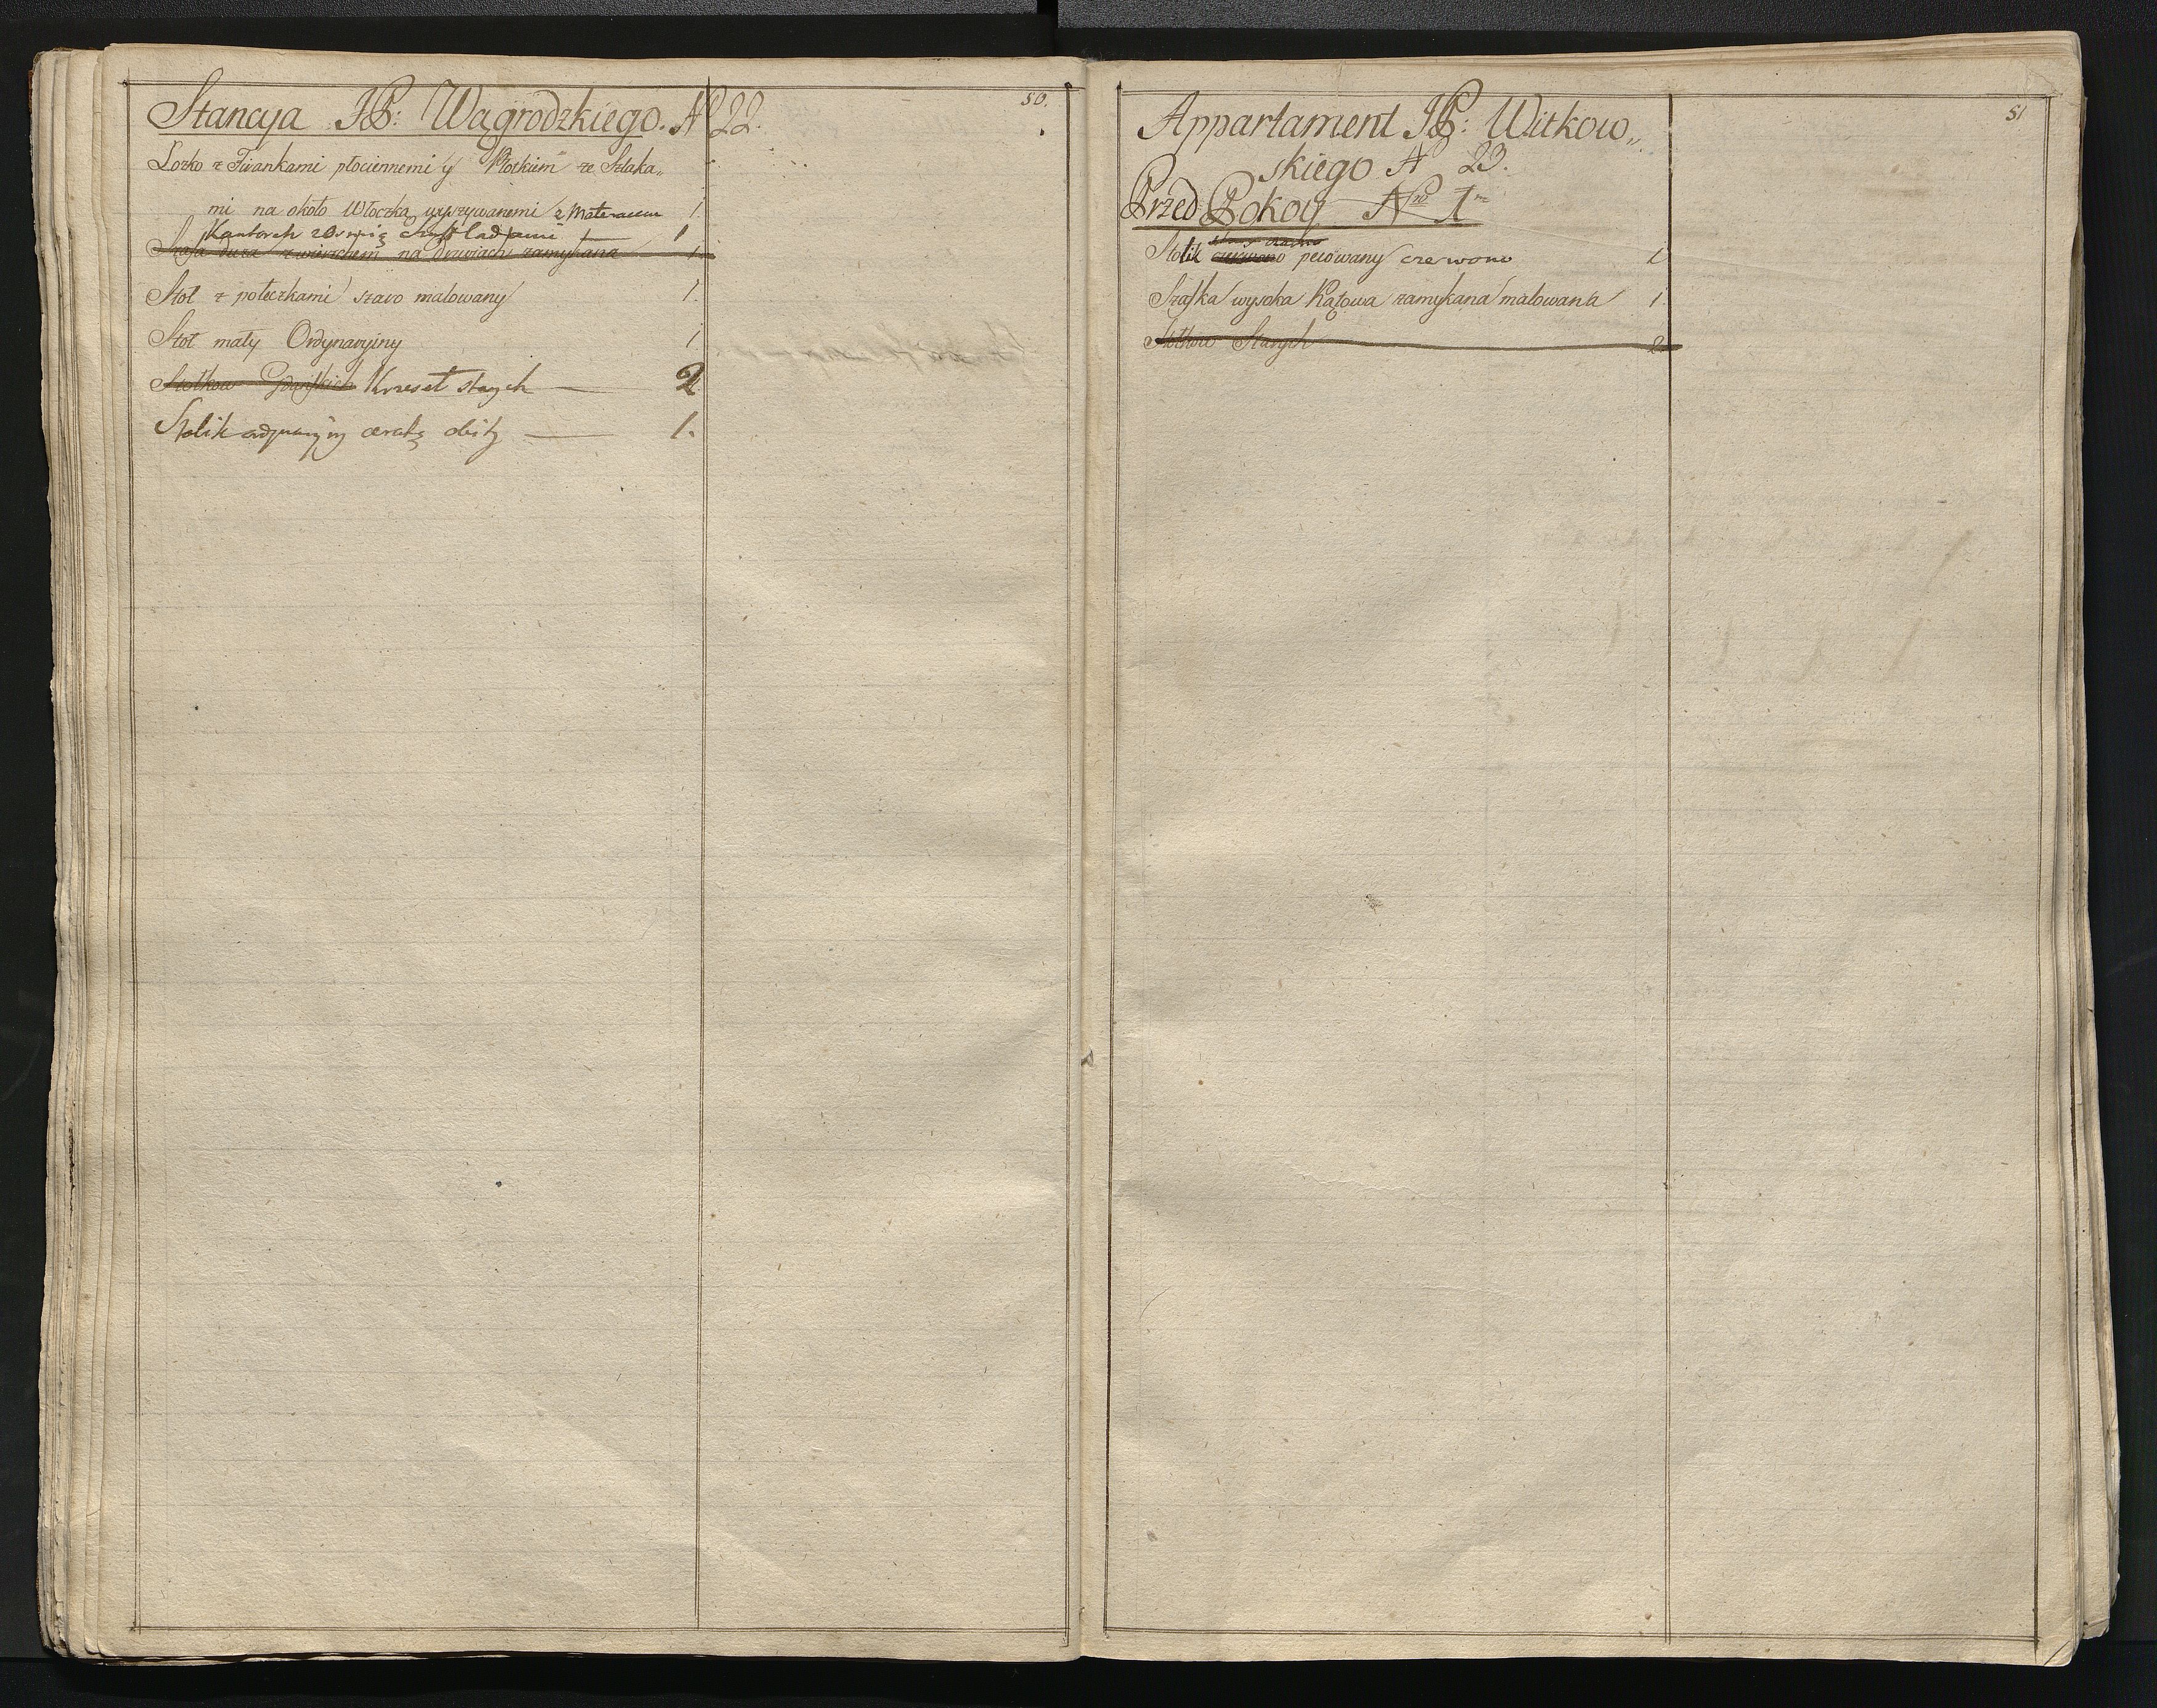 50.
Stancyja JP: Wągrodzkiego. N 22.
Łozko z Firankami płociennemi y Płotkiem ze Szlaka„
mi na około Włoczką wyszywanemi z Materacem 1.
Kantorek z Osmią Szufladami 1
Szafa duza z wierzchem na Drzwiach zamykana 1.
Stoł z połeczkami szaro malowany 1.
Stoł mały Ordynaryiny 1
Stołkow Gdańskich Krzeseł starych — 2
Stolik ordynaryiny ceratą obity — 1.
51
Appartament JP: Witkow„
skiego N 23.
Przed Pokoy Nro 1
Stolik czerwono peiowany czerwono 1
Szafka wysoka Kątowa zamykana malowana 1.
Stołkow Starych 2.